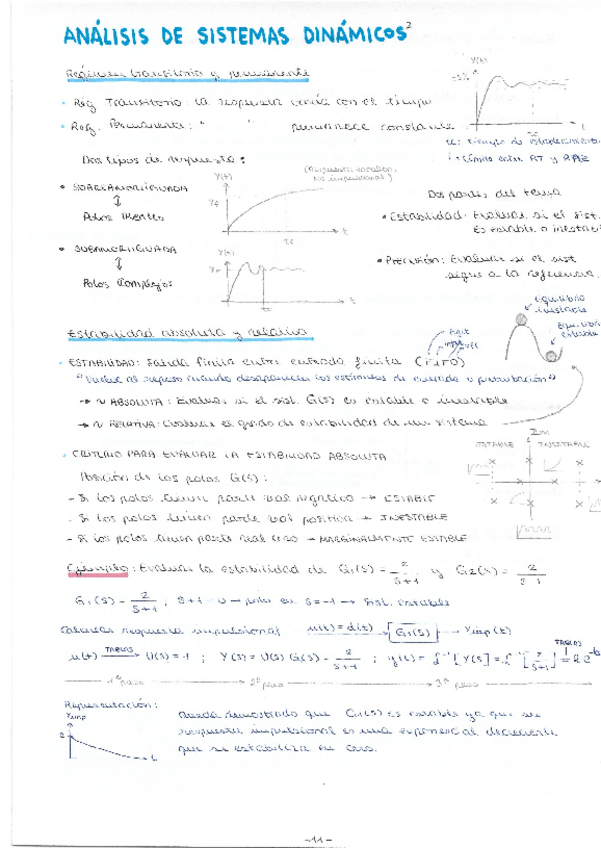 ANÁLISIS DE SISTEMAS DINÁMICOS²
Régimen transitorio y permanente
· Reg. Transitorio: la respuesta varía con el tiempo
· Reg. Permanente: " " permanece constante
Dos tipos de respuesta:
Y(t)
t
tc: tiempo de establecimiento
límite entre RT y
• SOBREAMORTIGUADA
Polos Reales
Y(t)
tc
t
• SUBAMORTIGUADA
Polos Complejos
Y(t)
tc
t
Dos partes del tema
• Estabilidad: Evaluar si el sist.
es estable o inestable
• Precisión: Evaluar si el sist
sigue a la referencia
Estabilidad absoluta y relativa
equilibrio inestable
equilibrio estable
· ESTABILIDAD: Salida finita entre entrada finita (FIFO)
"Vuelve al reposo cuando desaparecen los estímulos de entrada o perturbación"
→ ~ ABSOLUTA: Evaluar si el sist. G(s) es estable o inestable
→ ~ RELATIVA: Evaluar el grado de estabilidad de un sistema
· CRITERIO PARA EVALUAR LA ESTABILIDAD ABSOLUTA
Im
ESTABLE INESTABLE
Posición de los polos G(s):
- Si los polos tienen parte real negativa → ESTABLE
- Si los polos tienen parte real positiva → INESTABLE
- Si los polos tienen parte real cero → MARGINALMENTE ESTABLE
Ejemplo: Evaluar la estabilidad de G1(s) = 2/(s+1) y G2(s) = 2/(s-1)
G1(s) = 2/(s+1) ; s+1=0 → polo en s=-1 → Sist. estable
Calcular respuesta impulsional u(t)=d(t) → G1(s) → Yimp(t)
u(t) TABLAS→ U(s)=1 ; Y(s)=U(s)·G1(s) = 2/(s+1) ; y(t)=ℒ⁻¹[Y(s)]=ℒ⁻¹[2/(s+1)] TABLAS = 2e^-t
1º paso → 2º paso → 3º paso
Representación:
Yimp
2
t
Queda demostrado que G1(s) es estable ya que su
respuesta impulsional es una exponencial decreciente
que se estabiliza en cero.
-11-